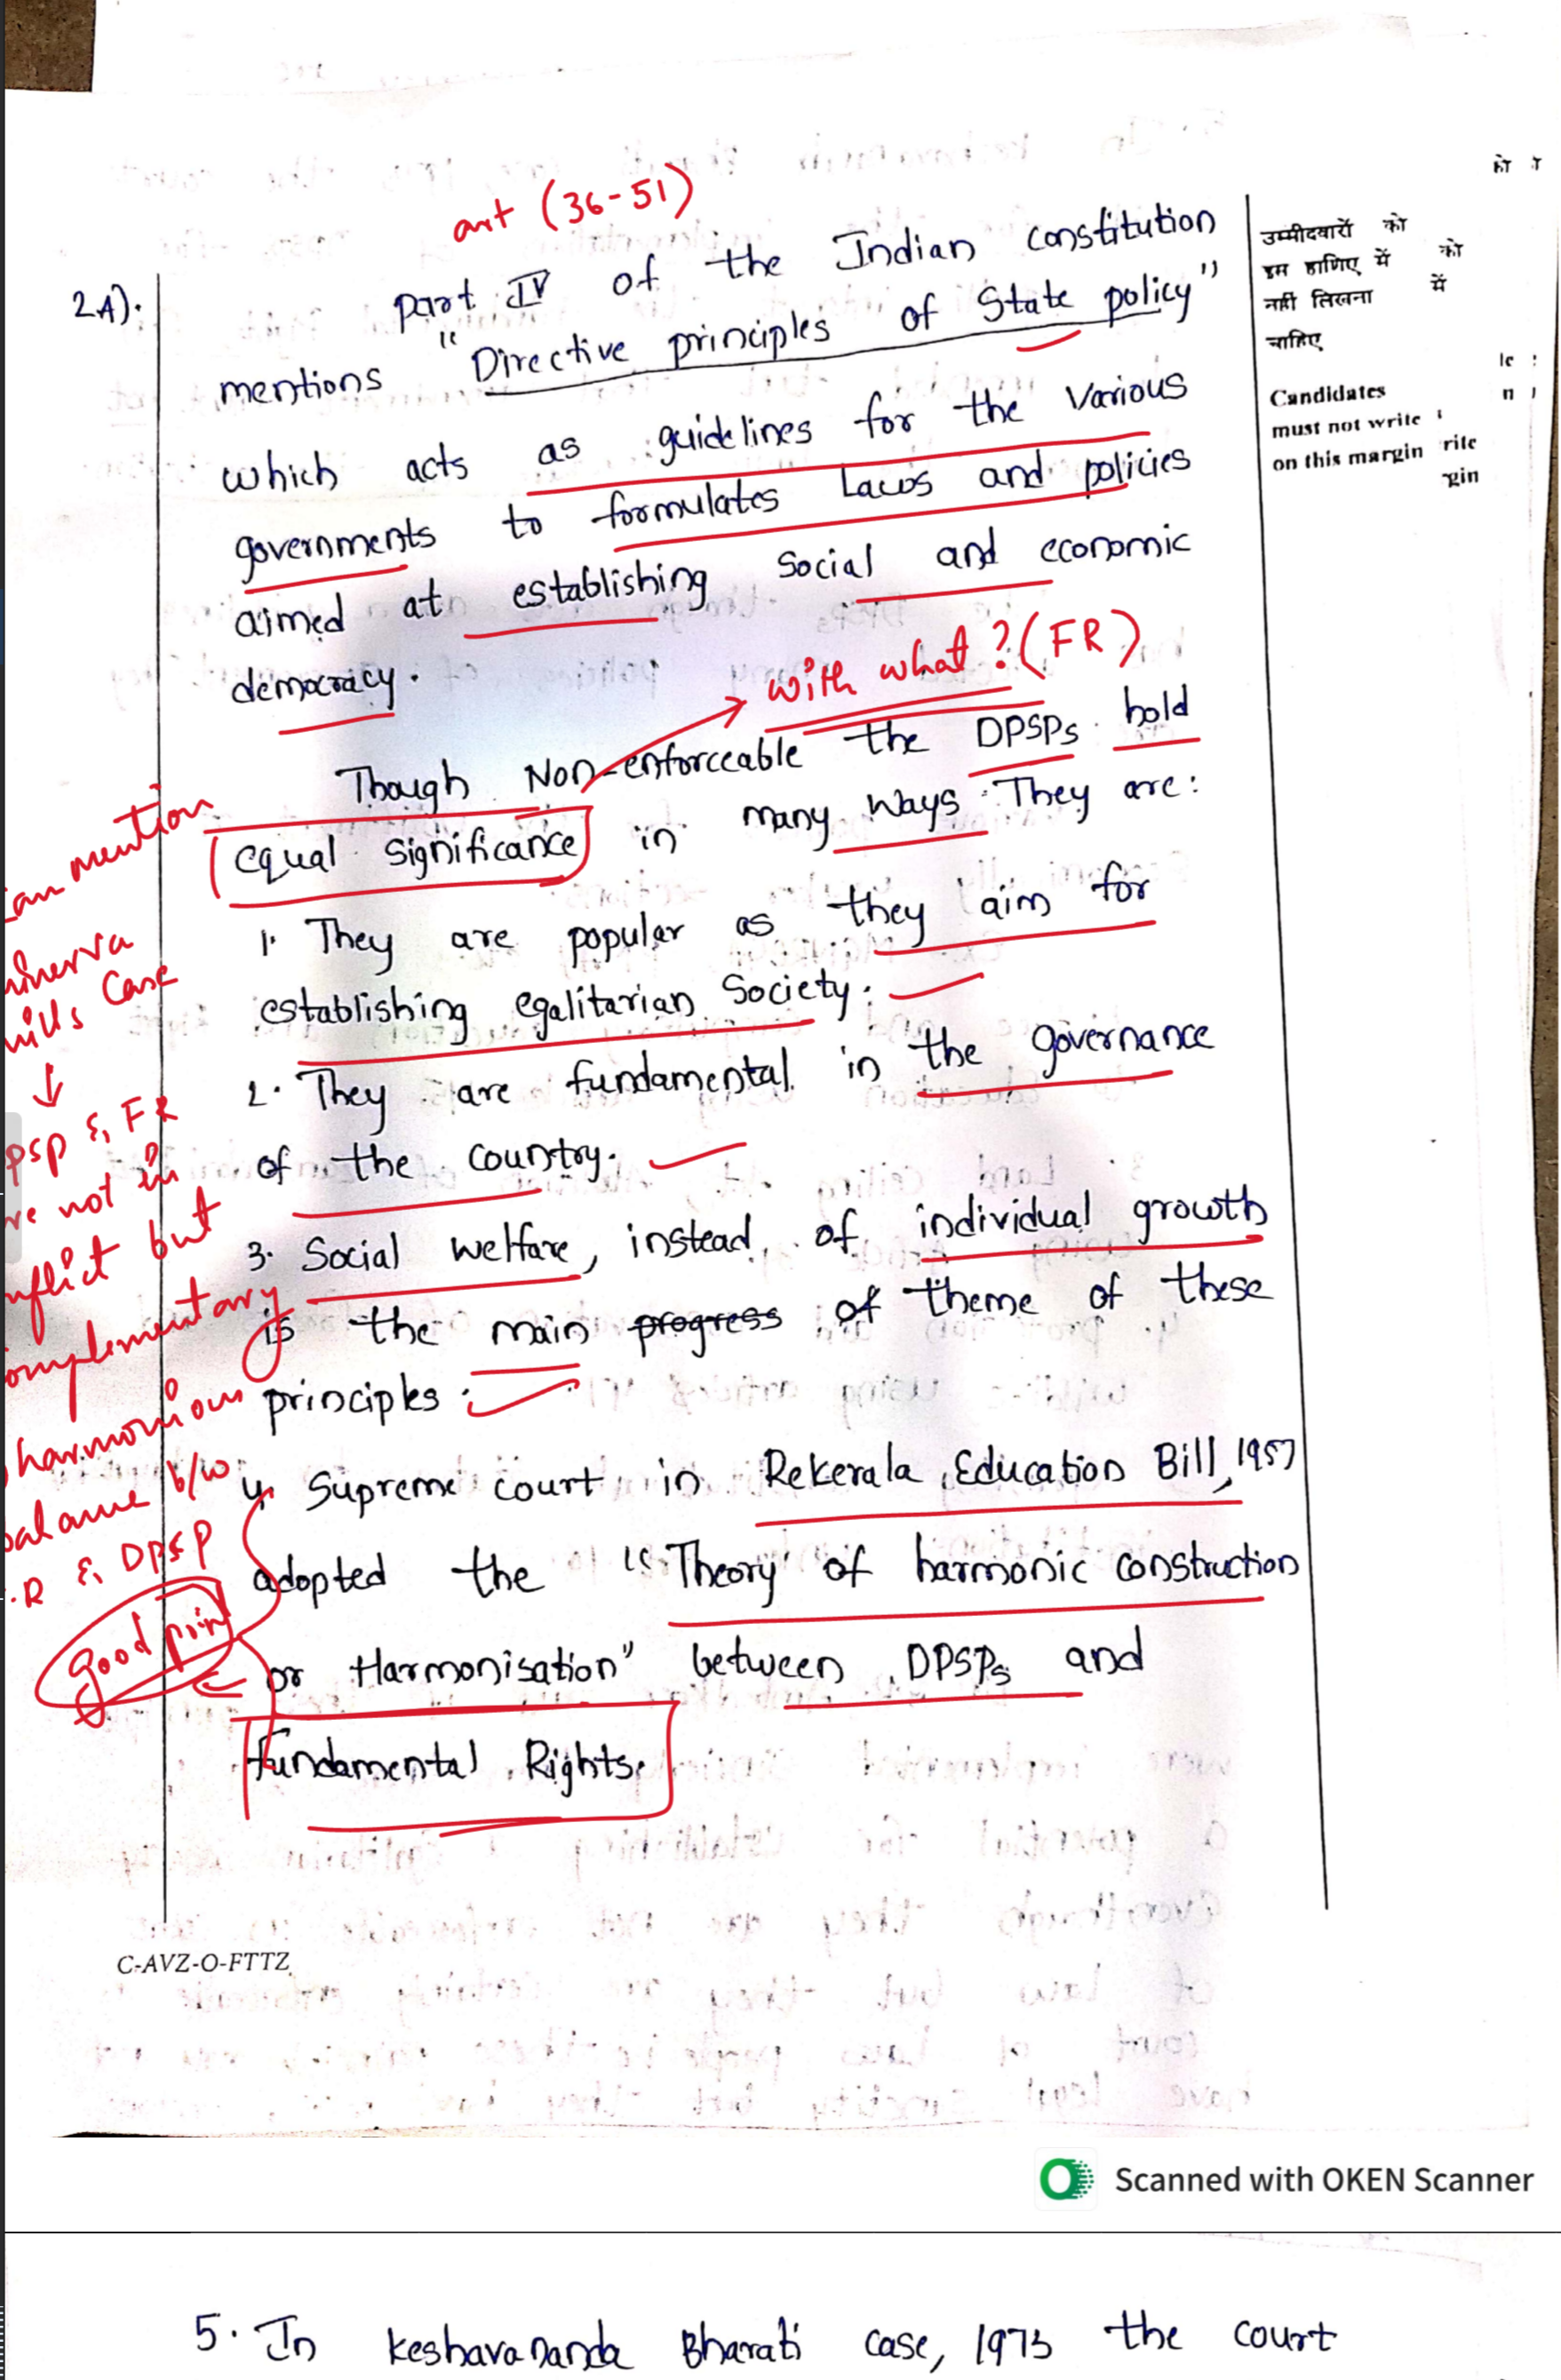 art (36-51)
2.A).
Part IV of the Indian constitution
mentions "Directive principles of State policy"
which acts as guidelines for the various
governments to formulates Laws and policies
aimed at establishing Social and economic
democracy.
with what? (FR)
Though Non-enforceable the DPSPs hold
equal significance in many ways. They are:
1. They are popular as they aim for
establishing egalitarian Society.
2. They are fundamental in the governance
of the country.
3. Social welfare, instead of individual growth
is the main progress of theme of these
principles.
4. Supreme court in Rekerala Education Bill, 1957
adopted the "Theory of harmonic construction
or Harmonisation" between DPSPs and
Fundamental Rights.
an mention
inerva
ills Case
↓
PSP & FR
re not in
nflict but
omplementary
harmonious
balance b/w
.R & DPSP
good point
उम्मीदवारों को
इस हाशिए में
नहीं लिखना
चाहिए
Candidates
must not write
on this margin
को
में
rite
gin
C-AVZ-O-FTTZ
Scanned with OKEN Scanner
5. In Keshavananda Bharati case, 1973 the court